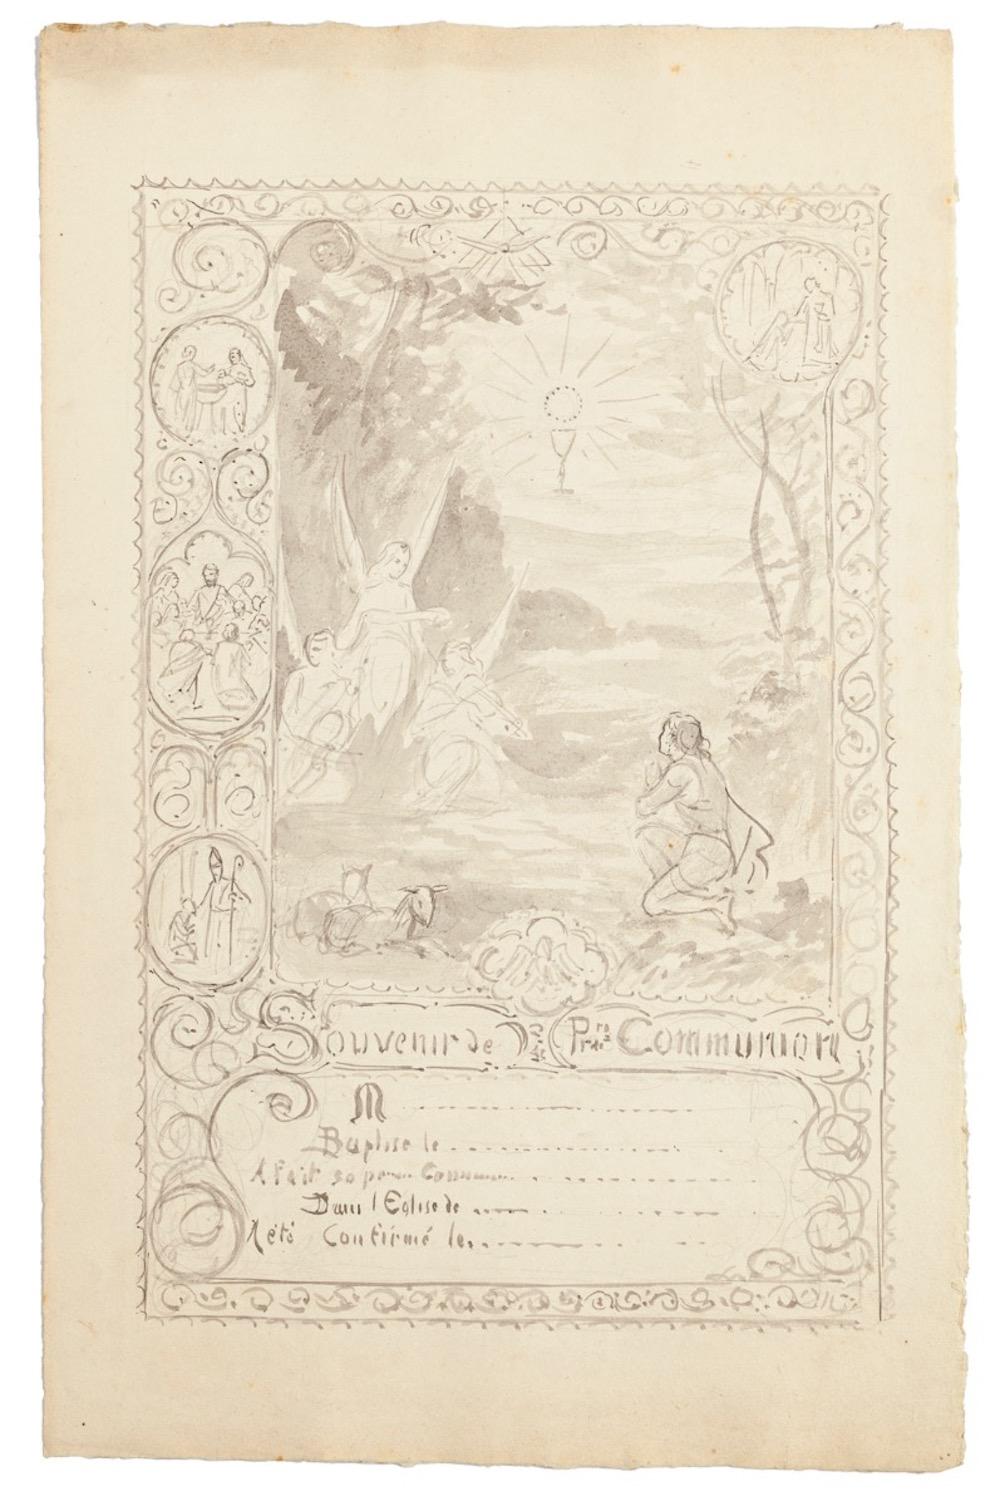 Souvenir de Pre Communion
M
Baptise le
A fait sa
Dans l'Eglise de
A été Confirmé le.